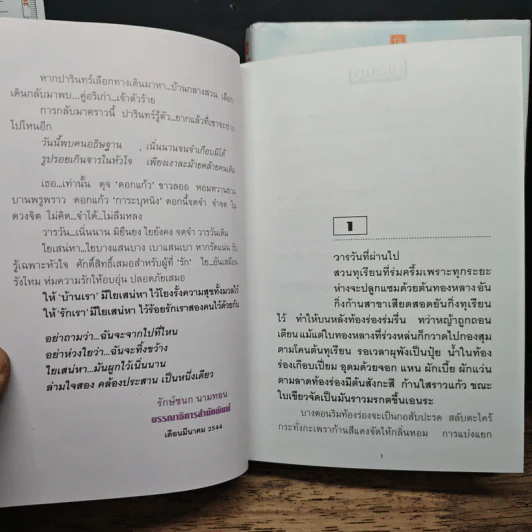 หากปารินทร์เลือกทางเดินมาหา...บ้านกลางสวน เลือก
เดินกลับมาพบ...คู่อริเก่า...เจ้าตัวร้าย
การกลับมาคราวนี้ ปารินทร์รู้ตัว...ยากแล้วที่เขาจะย่าง
ไปไหนอีก
วันนี้พบคนอธิษฐาน , เนิ่นนานจนจำเกือบมิได้
รูปรอยเกินจารในหัวใจ เพียงเงาละม้ายคล้ายคนเดิม
เธอ...เท่านั้น ดุจ 'ดอกแก้ว' ขาวลออ หอมหวานยาม
บานพรูพราว ดอกแก้ว 'การะบุหนิง' ดอกนี้จดจำ จำจด ใน
ดวงจิต ไม่คิด...จำได้...ไม่ลืมหลง
วารวัน...เนิ่นนาน มิยืนยง ใยยังคง จดจำ วารวันดี
ใยเสน่หา...ใยบางแสนบาง เบาแสนเบา หากรัดแน่น
รู้เฉพาะหัวใจ ศักดิ์สิทธิ์เสมอสำหรับผู้ที่ 'รัก' ใย...อันเสมือน
รังไหม ห่มความรักให้อบอุ่น ปลอดภัยเสมอ
ให้ 'บ้านเรา' มีใยเสน่หา ไว้โยงรั้งความสุขทั้งมวลไว้
ให้ 'รักเรา' มีใยเสน่หา ไว้ร้อยรักเราสองคนไว้ด้วยกัน
อย่าถามว่า...ฉันจะจากไปที่ไหน
อย่าห่วงใยว่า...ฉันจะทิ้งขว้าง
ใยเสน่หา...มันผูกไว้เนิ่นนาน
ล่ามใจสอง คล้องประสาน เป็นหนึ่งเดียว
รักษ์ชนก นามทอน
บรรณาธิการสำนักพิมพ์
เดือนมีนาคม 2544
1
วารวันที่ผ่านไป
สวนทุเรียนที่ร่มครึ้มเพราะทุกระยะ
ห่างจะปลูกแซมด้วยต้นทองหลาง อัน
กิ่งก้านสาขาเสียดสอดยันกิ่งทุเรียน
ไว้ ทำให้บนหลังท้องร่องร่มรื่น ทว่าหญ้าถูกถอน
เตียน แม้แต่ใบทองหลางที่ร่วงหล่นก็กวาดไปกองสุม
ตามโคนต้นทุเรียน รอเวลาผุพังเป็นปุ๋ย น้ำในท้อง
ร่องเกือบเปี่ยม อุดมด้วยจอก แหน ผักเบี้ย ผักแว่น
ตามลาดท้องร่องมีต้นสังกะสี ก้านใสราวแก้ว ขณะ
ใบเขียวจัดเป็นมันราวมรกตขึ้นเอนระ
บางตอนริมท้องร่องจะเป็นกอสับปะรด สลับตะไคร้
กระทั่งกะเพราก้านสีแดงจัดให้กลิ่นหอม การแบ่งแยก
1